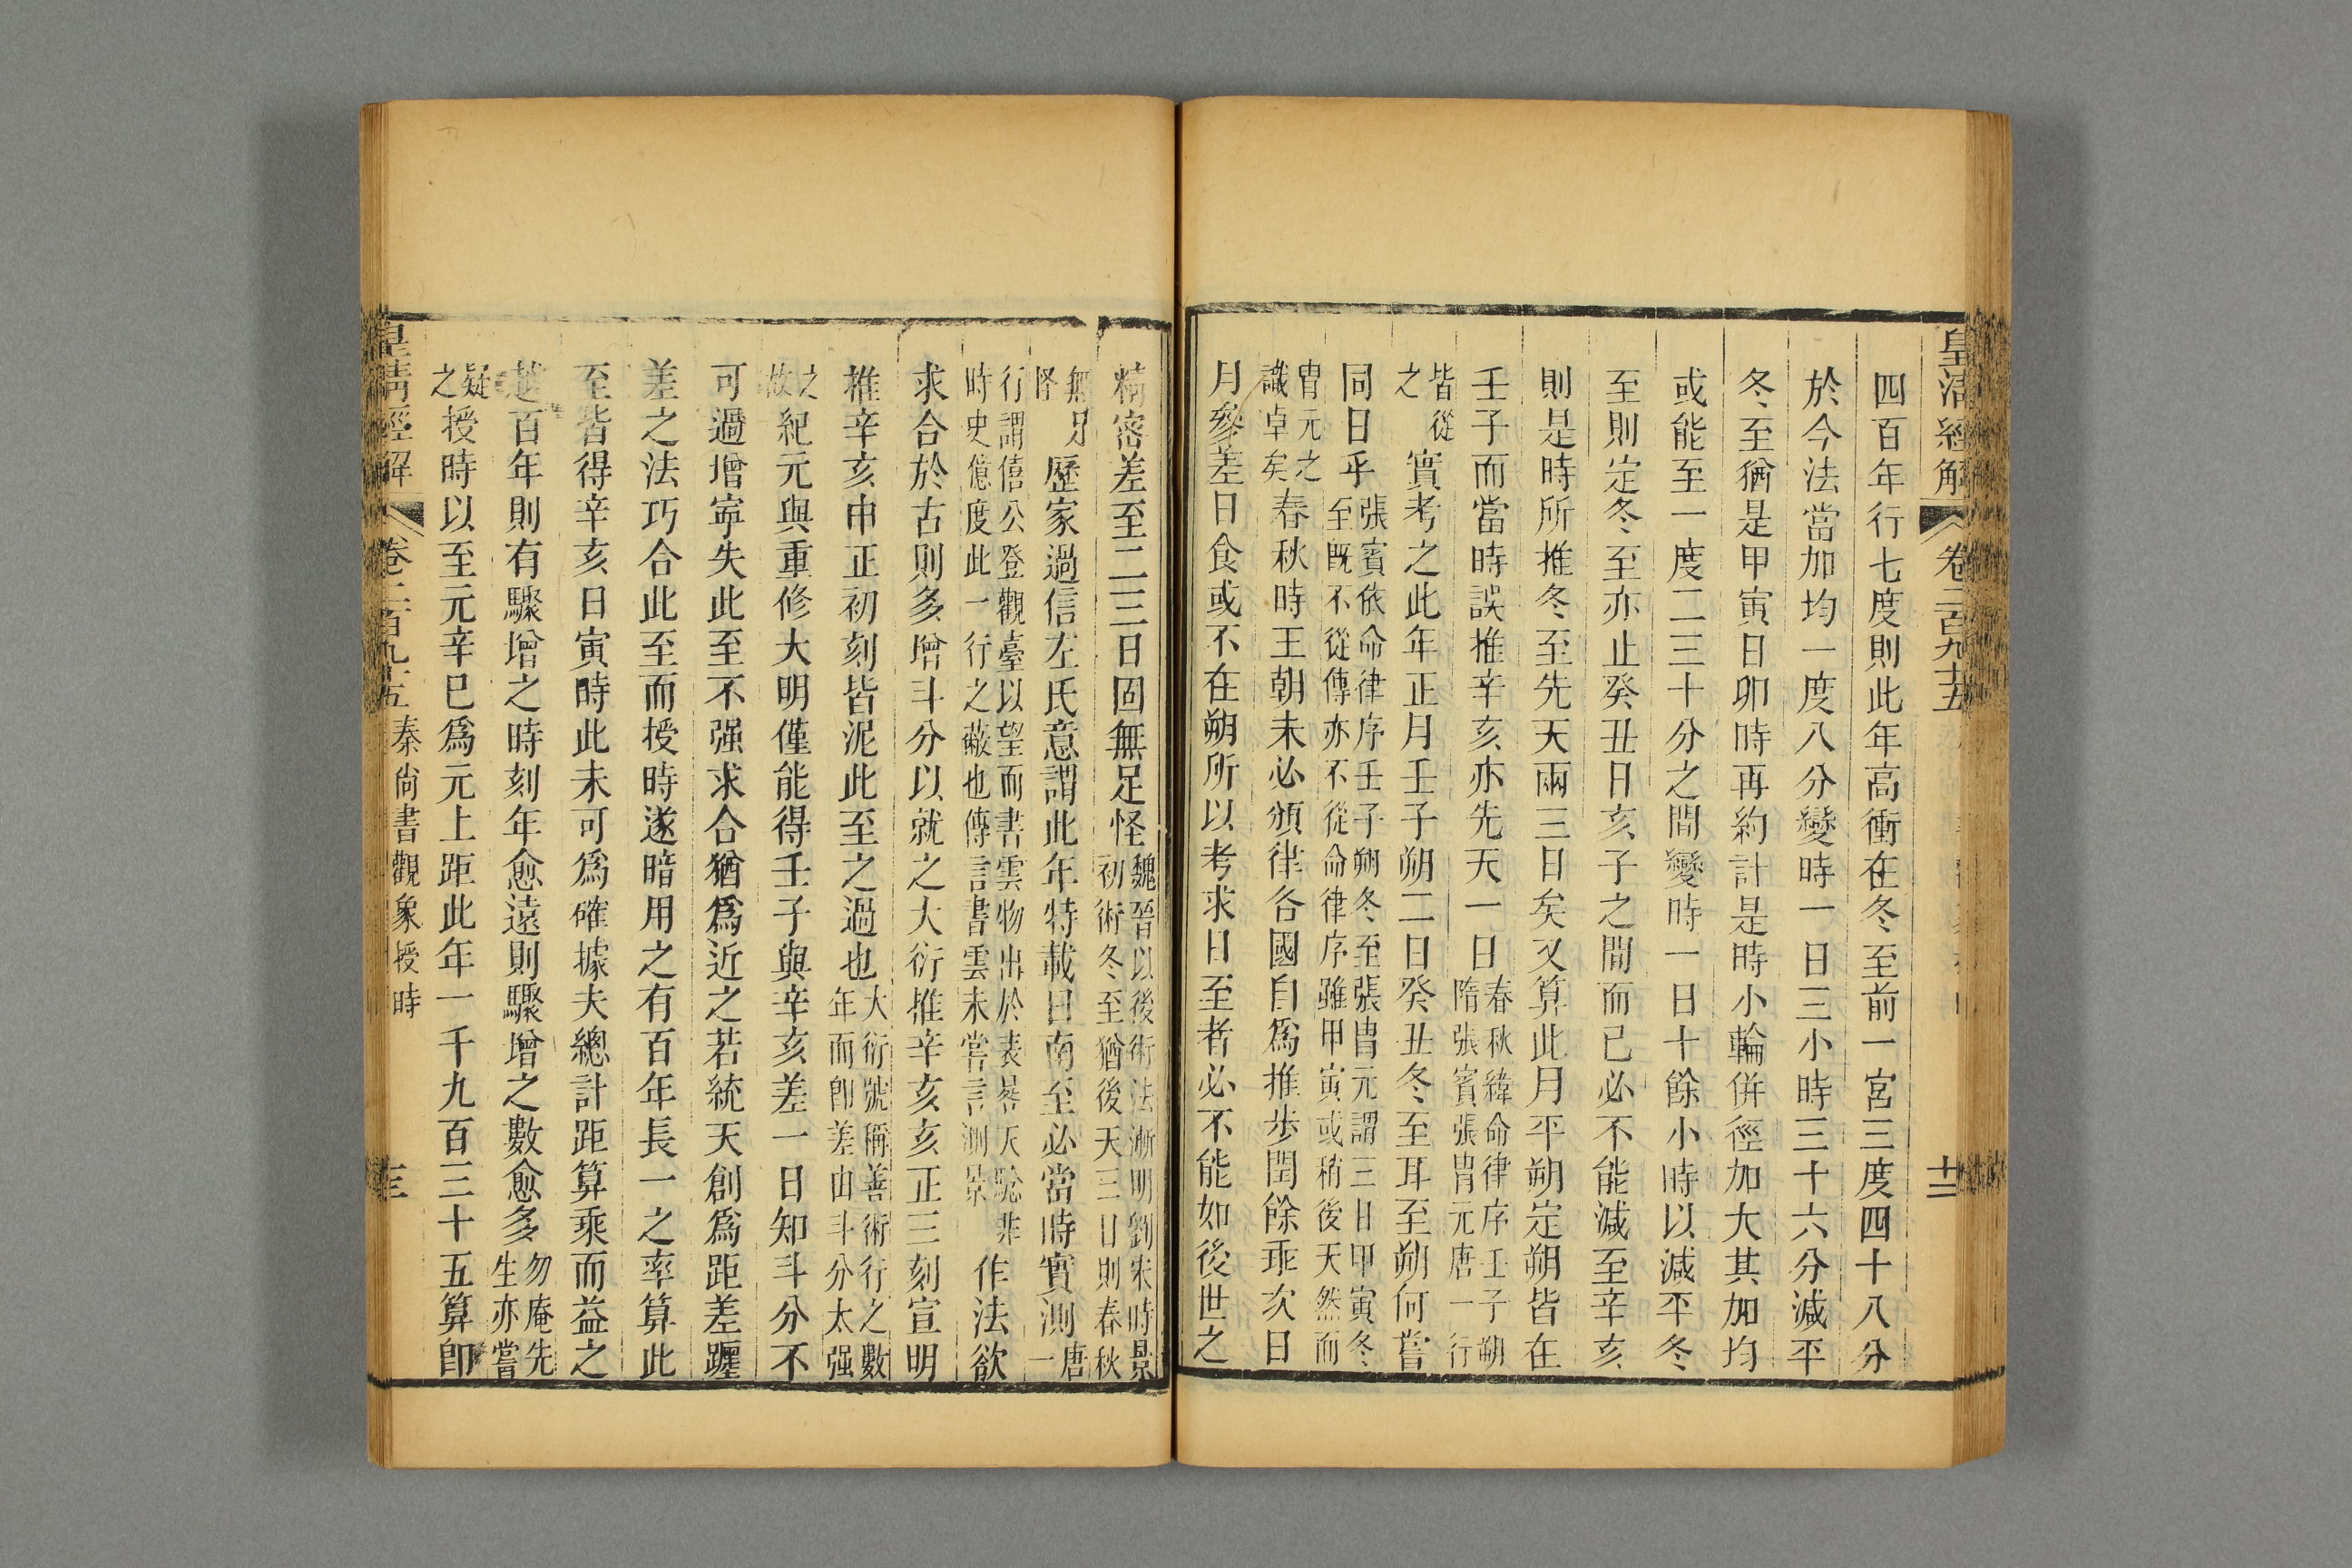 皇清經解
卷二百九十五
十二
四百年行七度則此年高衝在冬至前一宮三度四十八分
於今法當加均一度八分變時一日三小時三十六分減平
冬至猶是甲寅日卯時再約計是時小輪併徑加大其加均
或能至一度二三十分之間變時一日十餘小時以減平冬
至則定冬至亦止癸丑日亥子之間而已必不能減至辛亥
則是時所推冬至先天兩三日矣又算此月平朔定朔皆在
壬子而當時誤推辛亥亦先天一日春秋緯命律序壬子朔隋張賓張胄元唐一行
皆從之實考之此年正月壬子朔二日癸丑冬至耳至朔何嘗
同日乎張賓依命律序壬子朔冬至張胄元謂三日甲寅冬至既不從傳亦不從命律序雖甲寅或稍後天然而
胄元之識卓矣春秋時王朝未必頒律各國自爲推步閏餘乖次日
月參差日食或不在朔所以考求日至者必不能如後世之
精密差至二三日固無足怪魏晉以後術法漸明劉宋時景初術冬至猶後天三日則春秋
無足怪歷家過信左氏意謂此年特載日南至必當時實測唐一
行謂僖公登觀臺以望而書雲物出於表晷天驗非時史億度此一行之蔽也傳言書雲未嘗言測景作法欲
求合於古則多增斗分以就之大衍推辛亥亥正三刻宣明
推辛亥申正初刻皆泥此至之過也大衍號稱善術行之數年而卽差由斗分太强
之故紀元與重修大明僅能得壬子與辛亥差一日知斗分不
可過增寧失此至不强求合猶爲近之若統天創爲距差躔
差之法巧合此至而授時遂暗用之有百年長一之率算此
至皆得辛亥日寅時此未可爲確據夫總計距算乘而益之
越百年則有驟增之時刻年愈遠則驟增之數愈多勿庵先生亦嘗
疑之授時以至元辛巳爲元上距此年一千九百三十五算卽
皇清經解
卷二百九十五
秦尙書觀象授時